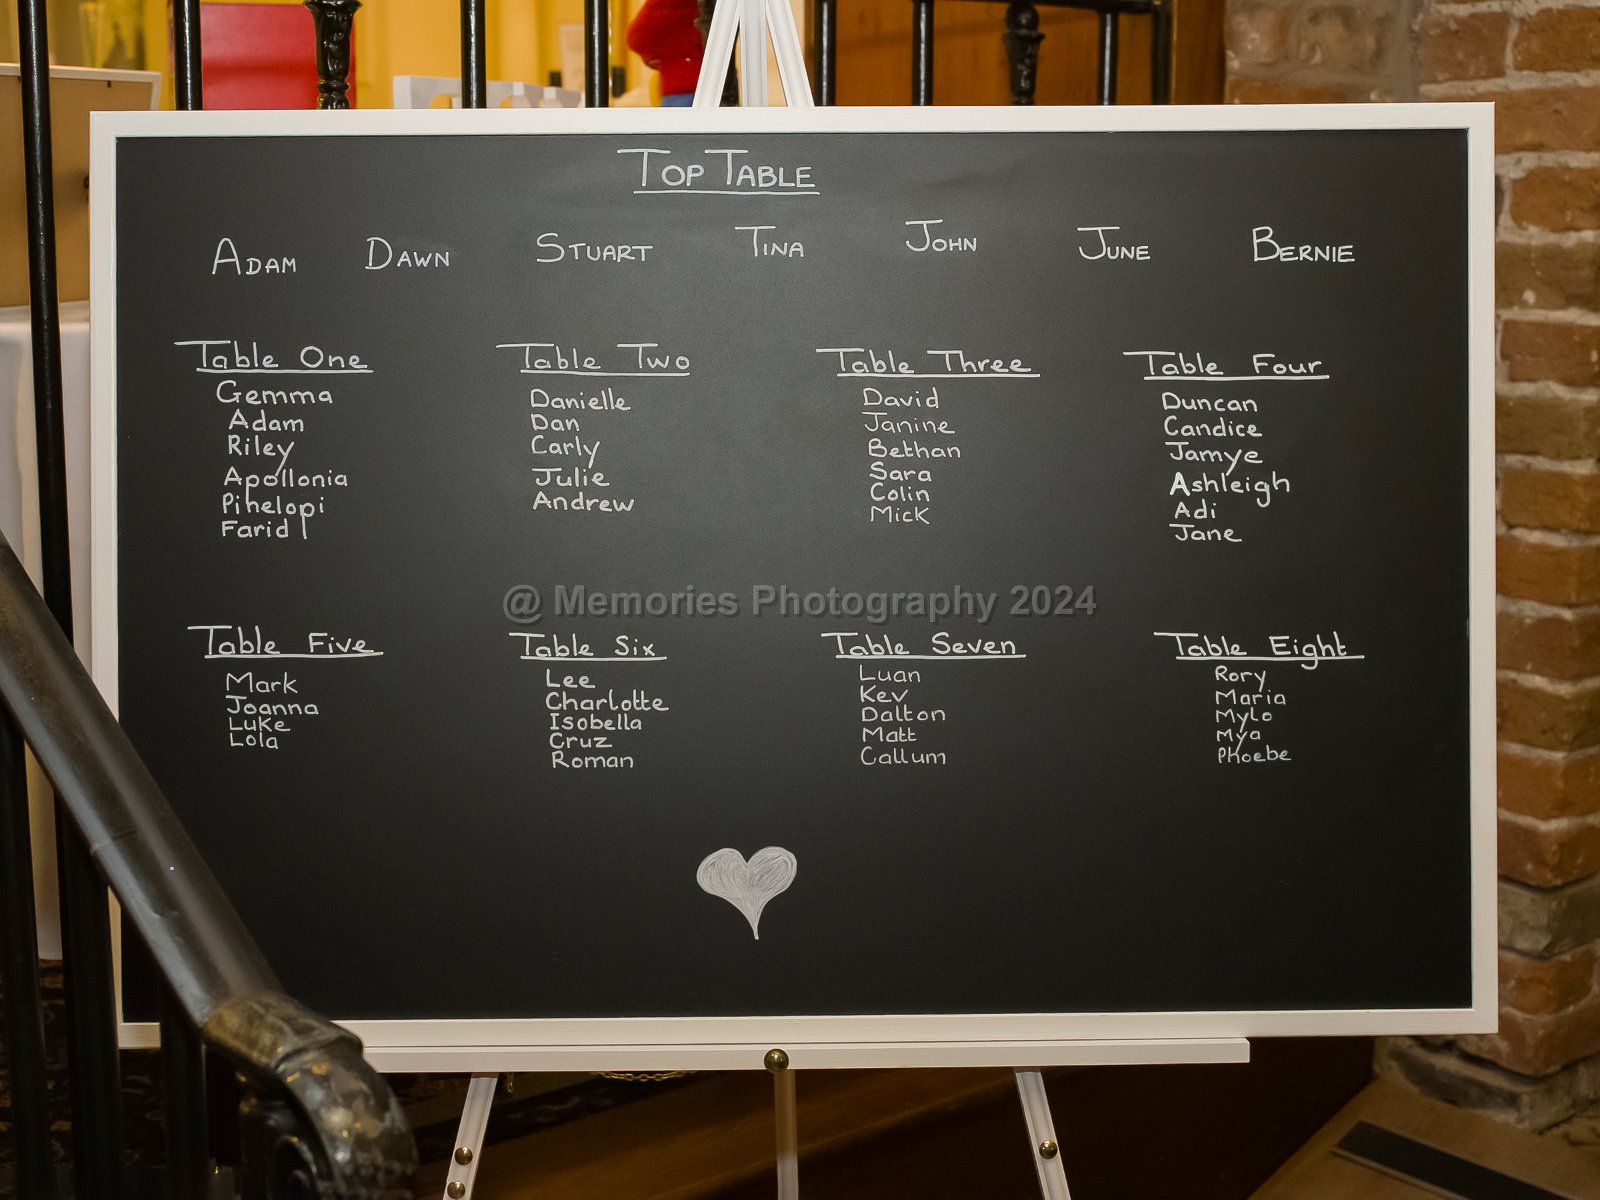 TOP TABLE
ADAM DAWN STUART TINA JOHN JUNE BERNIE
Table One
Gemma
Adam
Riley
Apollonia
Pihelopi
Farid
Table Two
Danielle
Dan
Carly
Julie
Andrew
Table Three
David
Janine
Bethan
Sara
Colin
Mick
Table Four
Duncan
Candice
Jamye
Ashleigh
Adi
Jane
@ Memories Photography 2024
Table Five
Mark
Joanna
Luke
Lola
Table Six
Lee
Charlotte
Isobella
Cruz
Roman
Table Seven
Luan
Kev
Dalton
Matt
Callum
Table Eight
Rory
Maria
Mylo
Mya
Phoebe